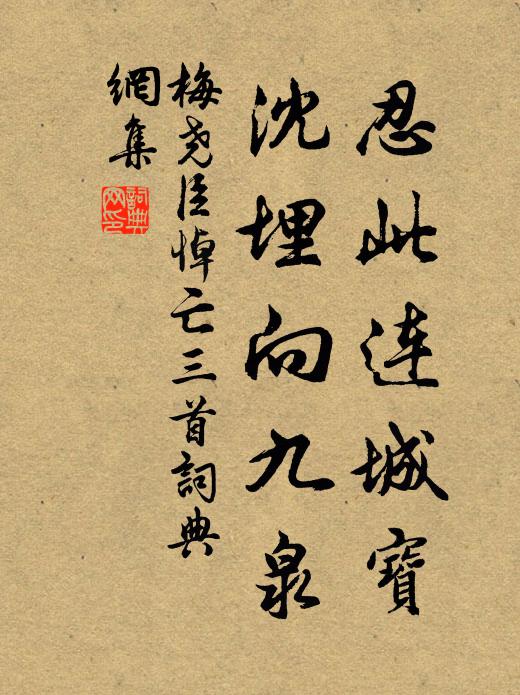 忍此连城寶
沈埋向九泉
梅尧臣悼亡三首詞典
網集
詞典網印